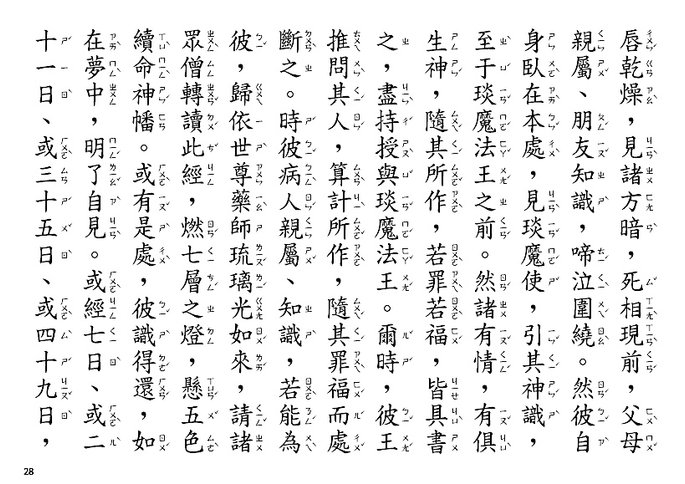 唇乾燥，見諸方暗，死相現前，父母
親屬、朋友知識，啼泣圍繞。然彼自
身臥在本處，見琰魔使，引其神識，
至于琰魔法王之前。然諸有情，有俱
生神，隨其所作，若罪若福，皆具書
之，盡持授與琰魔法王。爾時，彼王
推問其人，算計所作，隨其罪福而處
斷之。時彼病人親屬、知識，若能為
彼，歸依世尊藥師琉璃光如來，請諸
眾僧轉讀此經，燃七層之燈，懸五色
續命神幡。或有是處，彼識得還，如
在夢中，明了自見。或經七日、或二
十一日、或三十五日、或四十九日，
28